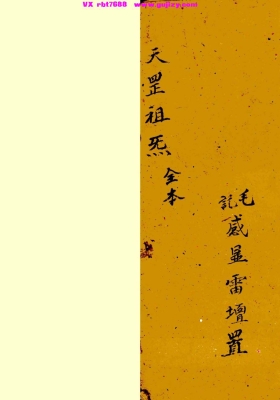 VX rbt7688  www.gujizy.com
天罡祖炁
全本
毛記
感显雷壇置